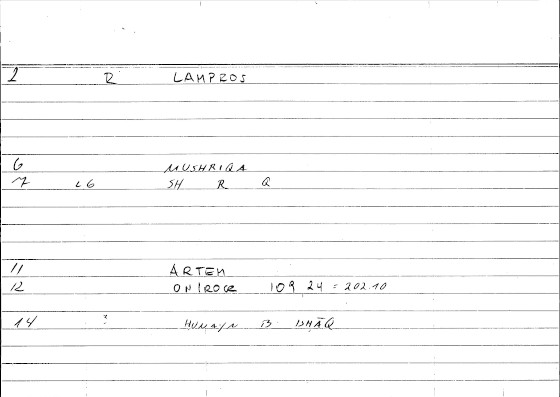 2 R LAMPROS
6 MUSHRIQA
7 L6 SH R Q
11 ARTEM
12 ONIROCR 109 24 = 202.10
14 ? HUNAYN B ISHĀQ